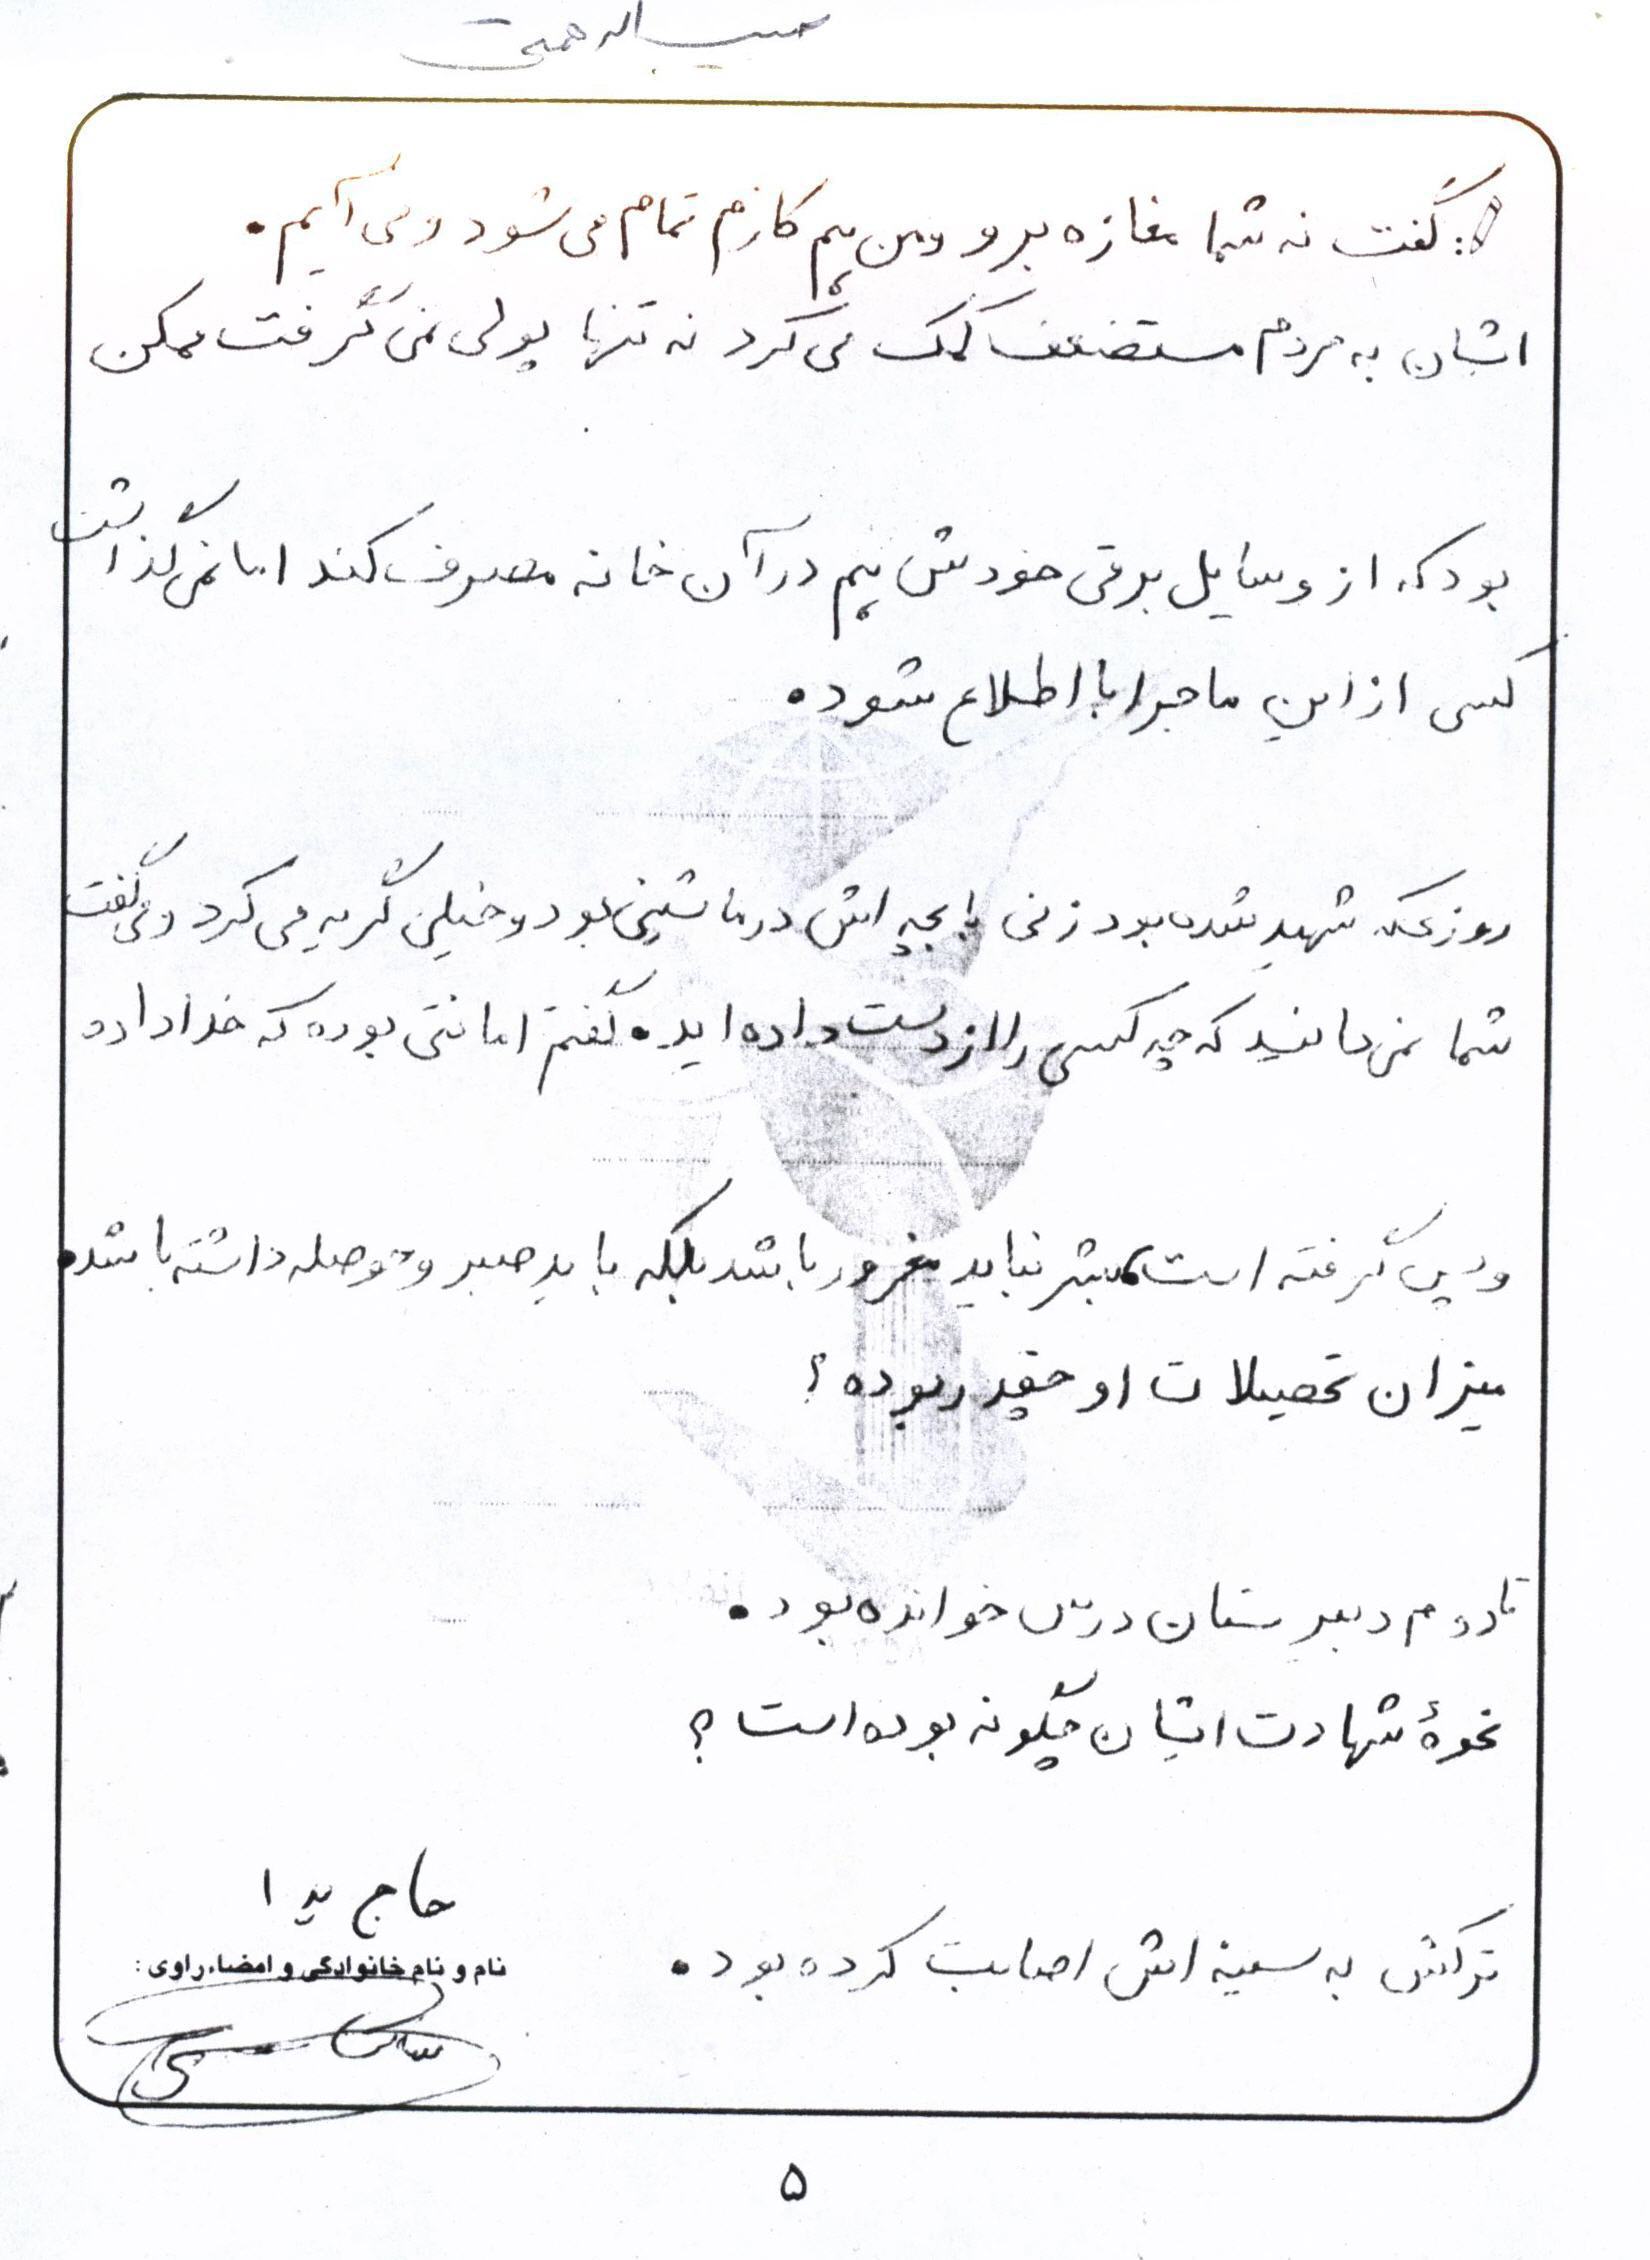 حبیب اله همتی
گفت نه شما مغازه برو و من هم کارم تمام می شود و می آیم.
ایشان به مردم مستضعف کمک می کرد نه تنها پولی نمی گرفت ممکن
بود که از وسایل برقی خودش هم در آن خانه مصرف کند اما نمی گذاشت
کسی از این ماجرا با اطلاع شود.
روزی که شهید شده بود زنی با بچه اش در ماشینی بود و خیلی گریه می کرد و می گفت
شما نمی دانید که چه کسی را از دست داده اید. گفتم امانتی بوده که خدا داده
و پس گرفته است بشر نباید مغرور باشد بلکه باید صبر و حوصله داشته باشد.
میزان تحصیلات او چقدر بوده؟
تا دوم دبیرستان درس خوانده بود.
نحوهٔ شهادت ایشان چگونه بوده است؟
ترکش به سینه اش اصابت کرده بود.
نام و نام خانوادگی و امضاء راوی:
۵